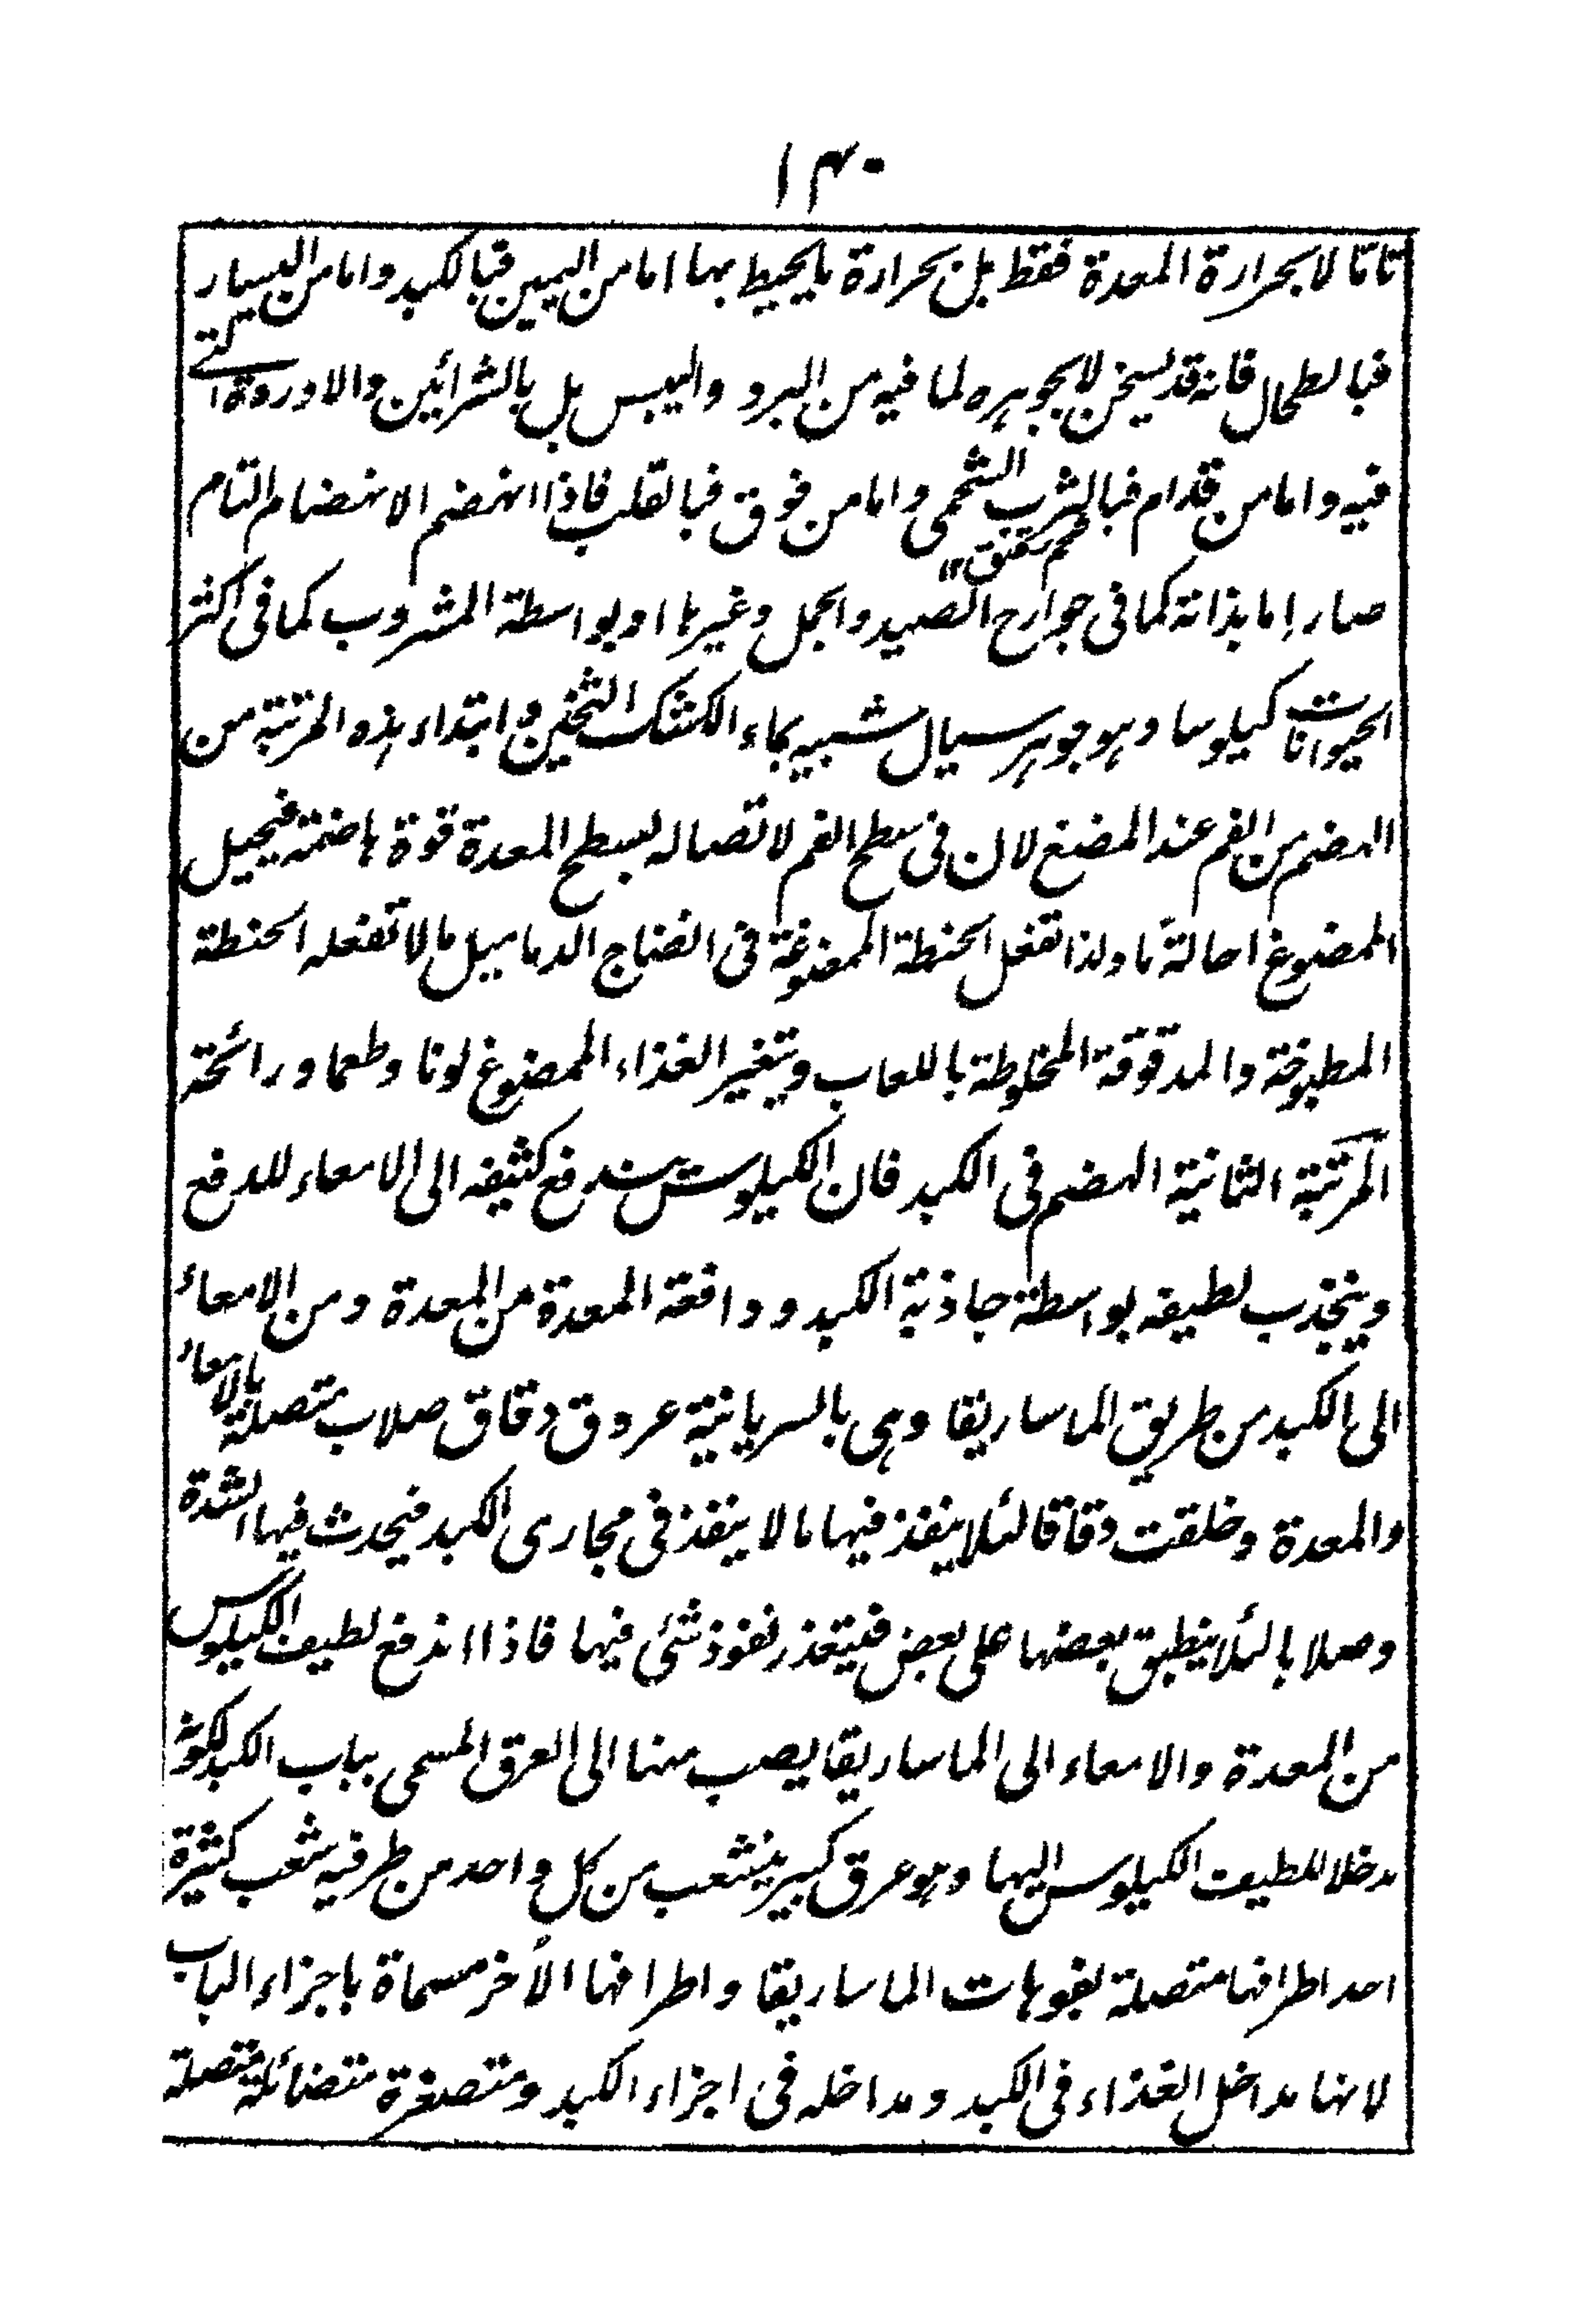 ١٣٠
تاما لا بحرارة المعدة فقط بل بحرارة ما يحيط بها اما من اليمين فبالكبد واما من اليسار
فبالطحال فانه قد يسخن لا بجوهره لما فيه من البرد واليبس بل بالشرائين والاوردة التي
فيه واما من قدام فبالثرب الشحمي واما من فوق فبالقلب فاذا انهضم الانهضام التام
صار اما بذاته كما في جوارح الصيد والجمل وغيرها او بواسطة المشروب كما في اكثر
الحيوانات كيلوسا وهو جوهر سيال شبيه بماء الكشك الثخين وابتداء هذه المرتبة من
الهضم من الفم عند المضغ لان في سطح الفم لاتصاله بسطح المعدة قوة هاضمة فيحيل
الممضوغ احالة ما ولذا تفعل الحنطة الممضوغة في انضاج الدماميل ما لا تفعله الحنطة
المطبوخة والمدقوقة المخلوطة باللعاب ويتغير الغذاء الممضوغ لونا وطعما ورائحة
المرتبة الثانية الهضم في الكبد فان الكيلوس يندفع كثيفه الى الامعاء للدفع
وينجذب لطيفه بواسطة جاذبة الكبد ودافعة المعدة من المعدة ومن الامعاء
الى الكبد من طريق الماساريقا وهي بالسريانية عروق دقاق صلاب متصلة بالامعاء
والمعدة وخلقت دقاقا لئلا ينفذ فيها ما لا ينفذ في مجاري الكبد فيحدث فيها السدة
وصلابا لئلا ينطبق بعضها على بعض فيتعذر نفوذ شئ فيها فاذا اندفع لطيف الكيلوس
من المعدة والامعاء الى الماساريقا يصب منها الى العرق المسمى بباب الكبد لكونه
مدخلا للطيف الكيلوس اليها وهو عرق كبير ينشعب من كل واحد من طرفيه شعب كثيرة
احد اطرافها متصلة بفوهات الماساريقا واطرافها الأخر مسماة باجزاء الباب
لانها مداخل الغذاء في الكبد ومداخله في اجزاء الكبد ومتصغرة متضائلة متصلة